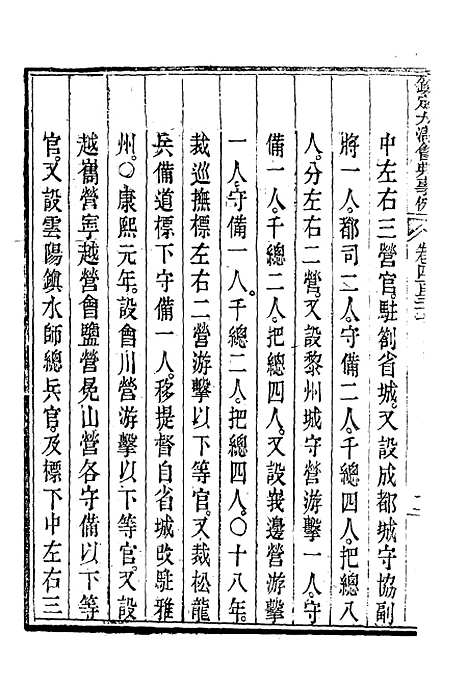 欽定大清會典事例 卷四百三十 二
中左右三營官。駐劄省城。又設成都城守協副
將一人。都司二人。守備二人。千總二人。把總八
人。分左右二營。又設黎州城守營游擊一人。守
備一人。千總二人。把總四人。又設峩邊營游擊
一人。守備一人。千總二人。把總四人。○十八年。
裁巡撫標左右二營游擊以下等官。又裁松龍
兵備道標下守備一人。移提督自省城改駐雅
州。○康熙元年。設會川營游擊以下等官。又設
越巂營寧越營會鹽營冕山營各守備以下等
官。又設雲陽鎮水師總兵官。及標下中左右三